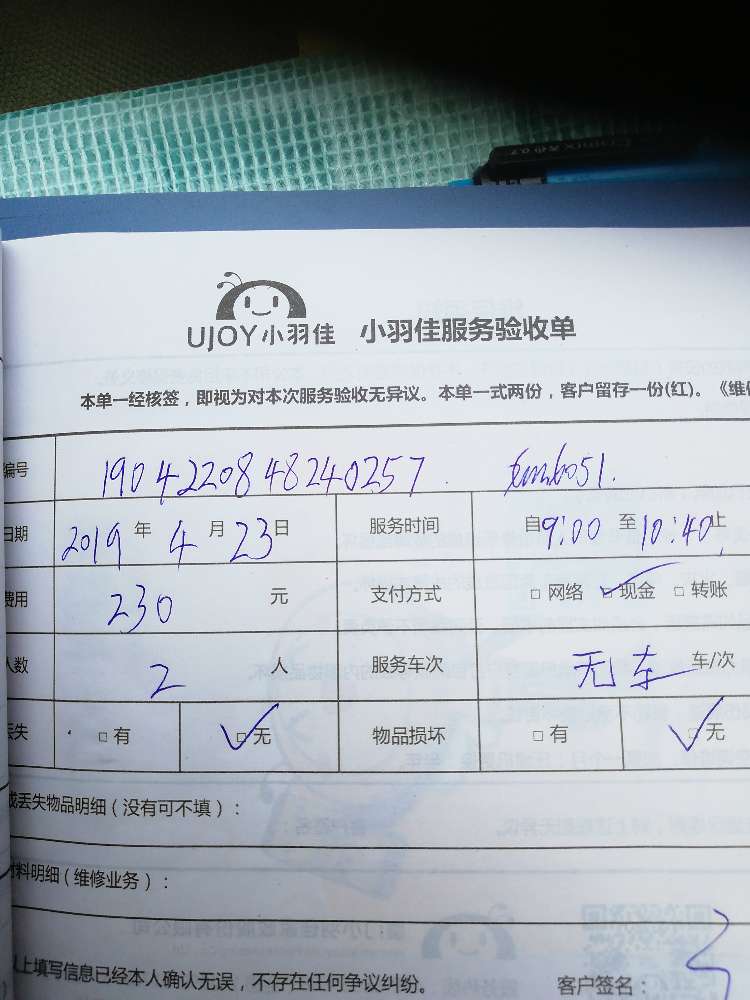 UJOY小羽佳 小羽佳服务验收单
本单一经核签，即视为对本次服务验收无异议。本单一式两份，客户留存一份(红)。《维修
编号 1904220848240257
日期 2019 年 4 月 23 日 服务时间 自 9:00 至 10:40 止
费用 230 元 支付方式 □ 网络 □ 现金 □ 转账
人数 2 人 服务车次 无车 车/次
丢失 □ 有 □ 无 物品损坏 □ 有 □ 无
或丢失物品明细（没有可不填）：
材料明细（维修业务）：
以上填写信息已经本人确认无误，不存在任何争议纠纷。 客户签名：